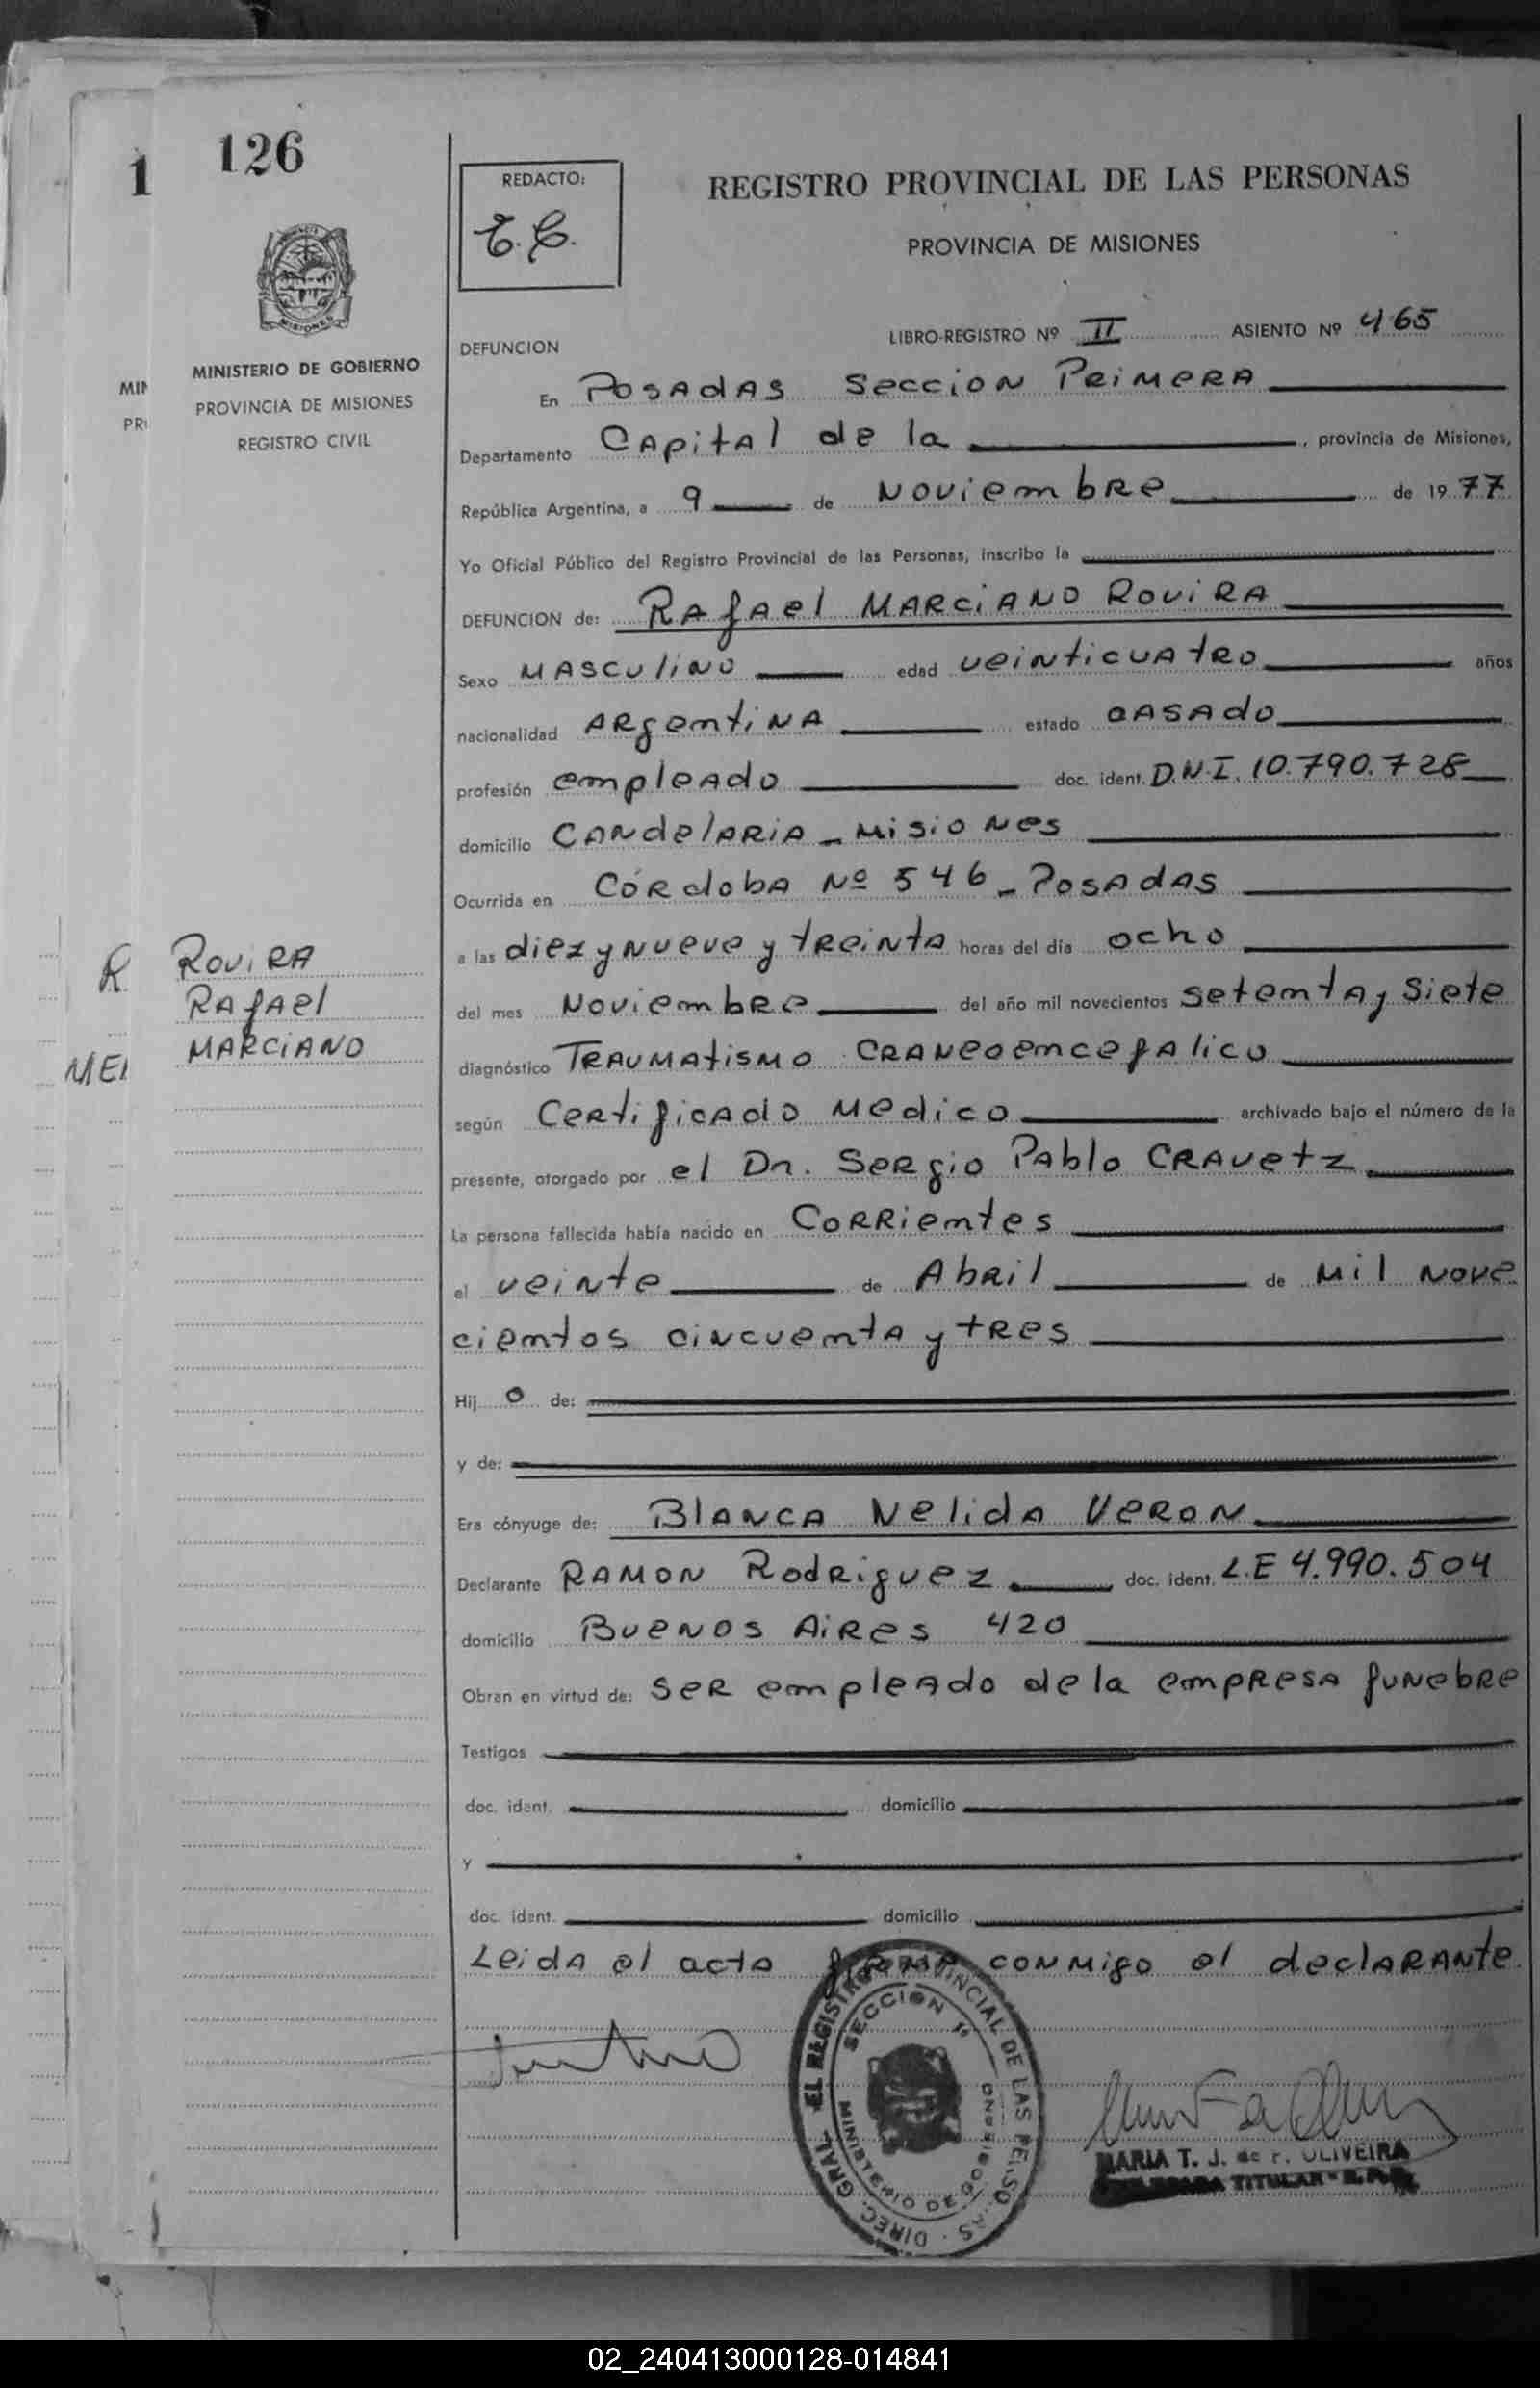 1
126
REDACTO:
E.C.
REGISTRO PROVINCIAL DE LAS PERSONAS
PROVINCIA DE MISIONES
MISIONES
LIBRO-REGISTRO Nº II ASIENTO Nº 465
DEFUNCION
MINISTERIO DE GOBIERNO
PROVINCIA DE MISIONES
REGISTRO CIVIL
MIN
PR
En Posadas Seccion Primera
Departamento Capital de la , provincia de Misiones,
República Argentina, a 9 de Noviembre de 1977
Yo Oficial Público del Registro Provincial de las Personas, inscribo la
DEFUNCION de: Rafael Marciano Rovira
Sexo Masculino edad veinticuatro años
nacionalidad Argentina estado casado
profesión empleado doc. ident. D.N.I. 10.790.728
domicilio Candelaria - Misiones
Ocurrida en Córdoba Nº 546 - Posadas
a las diez y nueve y treinta horas del día ocho
del mes Noviembre del año mil novecientos setenta y siete
diagnóstico Traumatismo craneoencefalico
según Certificado Medico archivado bajo el número de la
presente, otorgado por el Dr. Sergio Pablo Cravetz
La persona fallecida había nacido en Corrientes
el veinte de Abril de mil nove
cientos cincuenta y tres
Hij o de:
y de:
Era cónyuge de: Blanca Nelida Veron
Declarante Ramon Rodriguez doc. ident. L.E 4.990.504
domicilio Buenos Aires 420
Obran en virtud de: ser empleado de la empresa funebre
Testigos
doc. ident. domicilio
y
doc. ident. domicilio
Leida el acta firma conmigo el declarante.
R
MEN
Rovira
Rafael
Marciano
DIREC. GRAL. DEL REGISTRO PROVINCIAL DE LAS PERSONAS
SECCION 1ª
MINISTERIO DE GOBIERNO
MARIA T. J. de F. OLIVEIRA
TITULAR
02_240413000128-014841